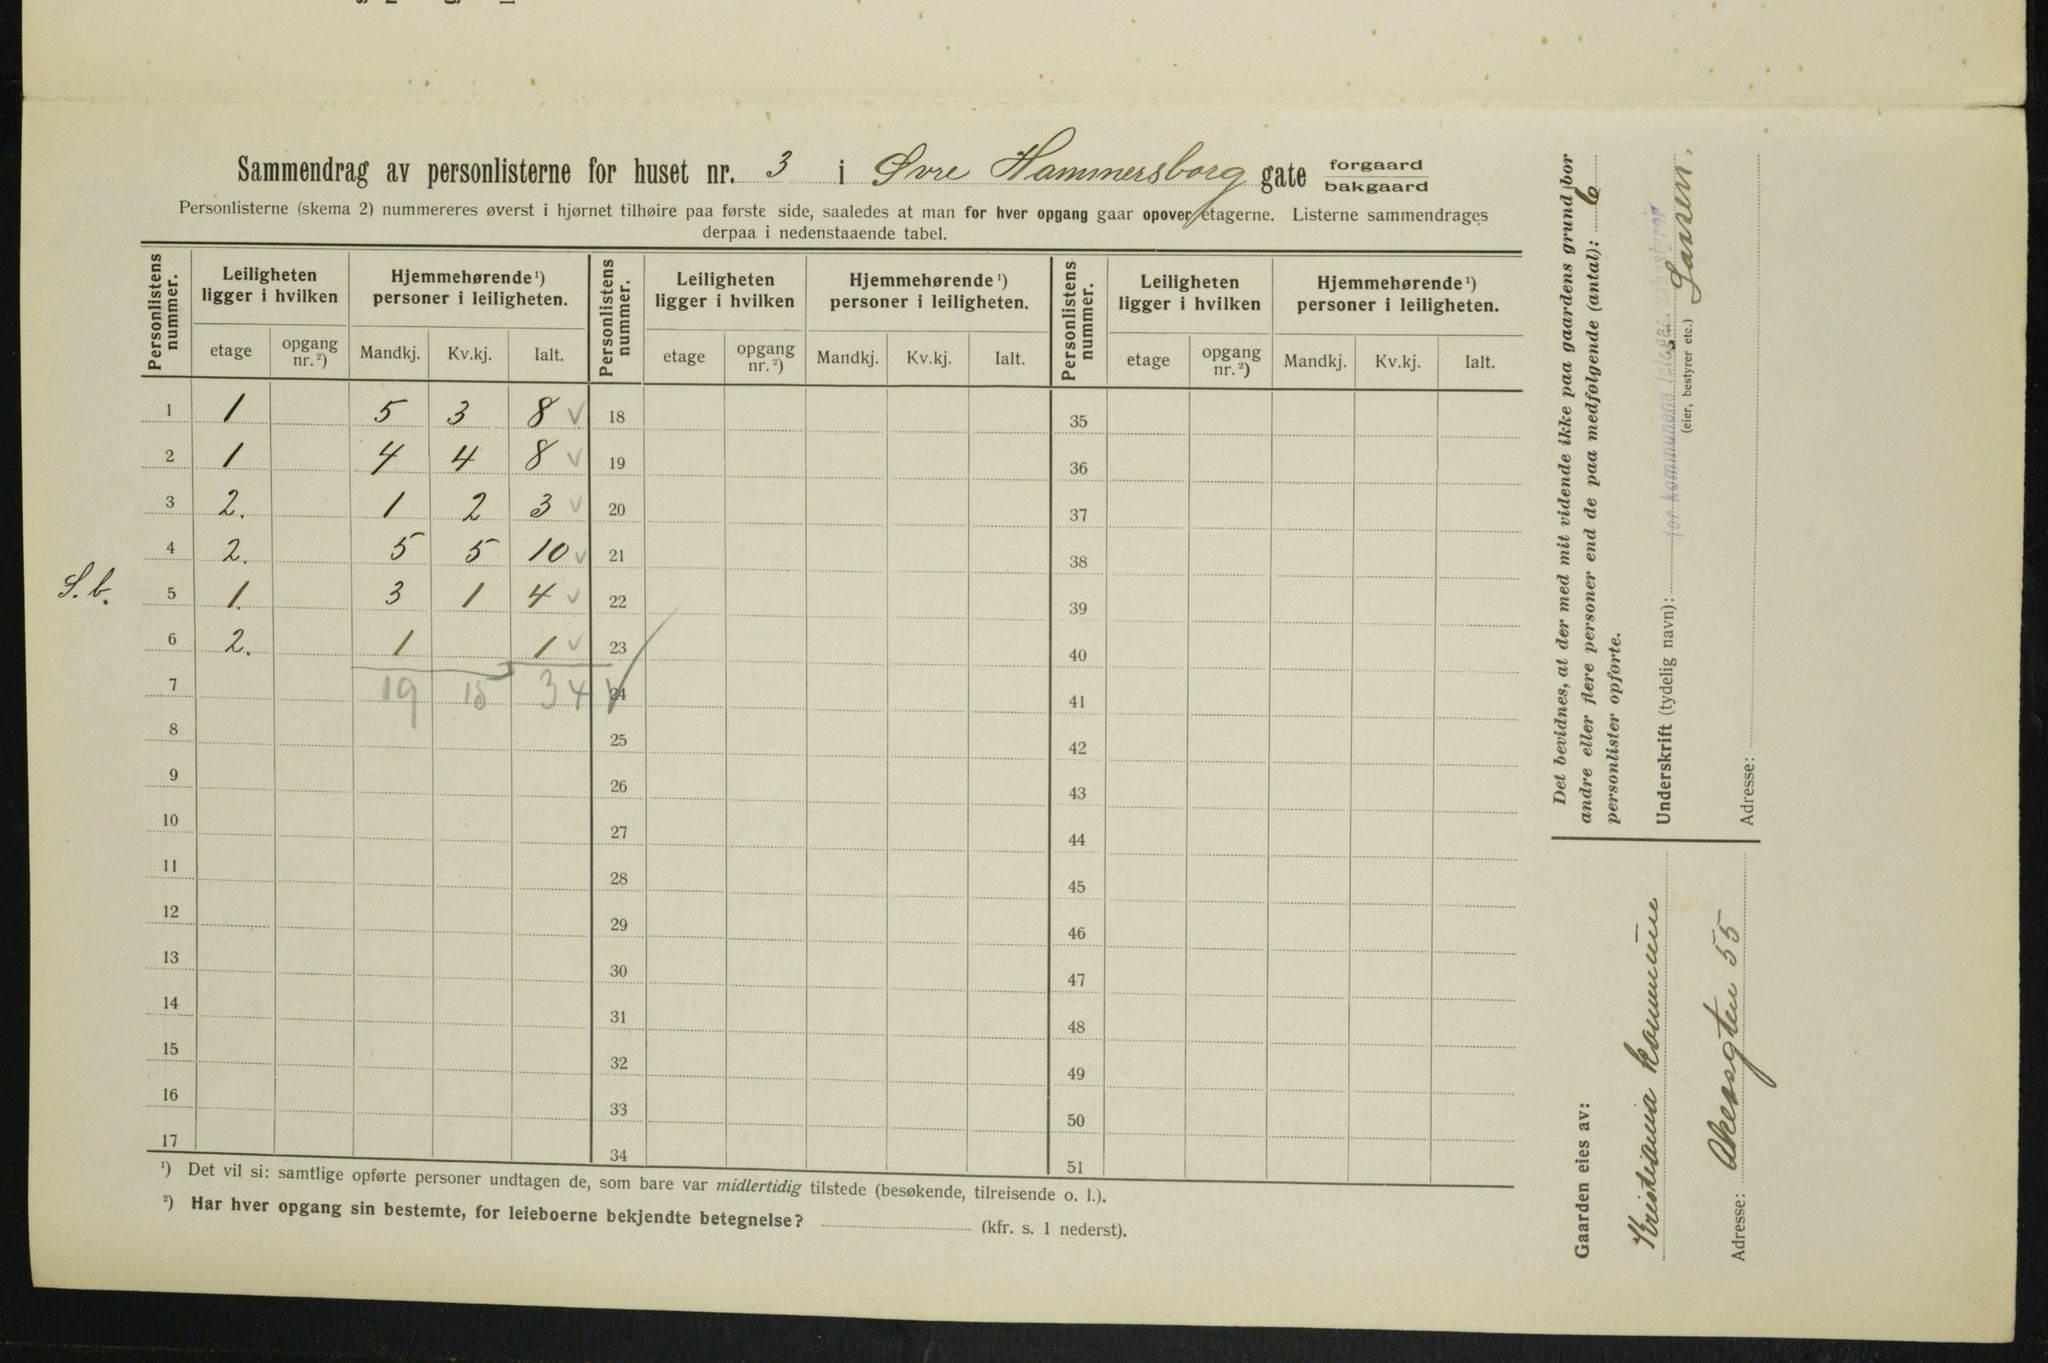 Sammendrag av personlisterne for huset nr. 3 i Øvre Hammersborg gate forgaard bakgaard
Personlisterne (skema 2) nummereres øverst i hjørnet tilhøire paa første side, saaledes at man for hver opgang gaar opover etagerne. Listerne sammendrages
derpaa i nedenstaaende tabel.
Personlistens nummer. Leiligheten ligger i hvilken Hjemmehørende ¹) personer i leiligheten. Personlistens nummer. Leiligheten ligger i hvilken Hjemmehørende ¹) personer i leiligheten. Personlistens nummer. Leiligheten ligger i hvilken Hjemmehørende ¹) personer i leiligheten.
etage opgang nr. ²) Mandkj. Kv.kj. Ialt. etage opgang nr. ²) Mandkj. Kv.kj. Ialt. etage opgang nr. ²) Mandkj. Kv.kj. Ialt.
1 1 5 3 8 18 35
2 1 4 4 8 19 36
3 2. 1 2 3 20 37
4 2. 5 5 10 21 38
S. b. 5 1. 3 1 4 22 39
6 2. 1 1 23 40
7 19 15 34 24 41
8 25 42
9 26 43
10 27 44
11 28 45
12 29 46
13 30 47
14 31 48
15 32 49
16 33 50
17 34 51
¹) Det vil si: samtlige opførte personer undtagen de, som bare var midlertidig tilstede (besøkende, tilreisende o. l.).
²) Har hver opgang sin bestemte, for leieboerne bekjendte betegnelse? (kfr. s. 1 nederst).
Det bevidnes, at der med mit vidende ikke paa gaardens grund bor
andre eller flere personer end de paa medfølgende (antal): 6
personlister opførte.
Underskrift (tydelig navn): for kommunens
Larsen.
(eier, bestyrer etc.)
Adresse:
Gaarden eies av:
Kristiania kommune
Adresse: Akersgten 55